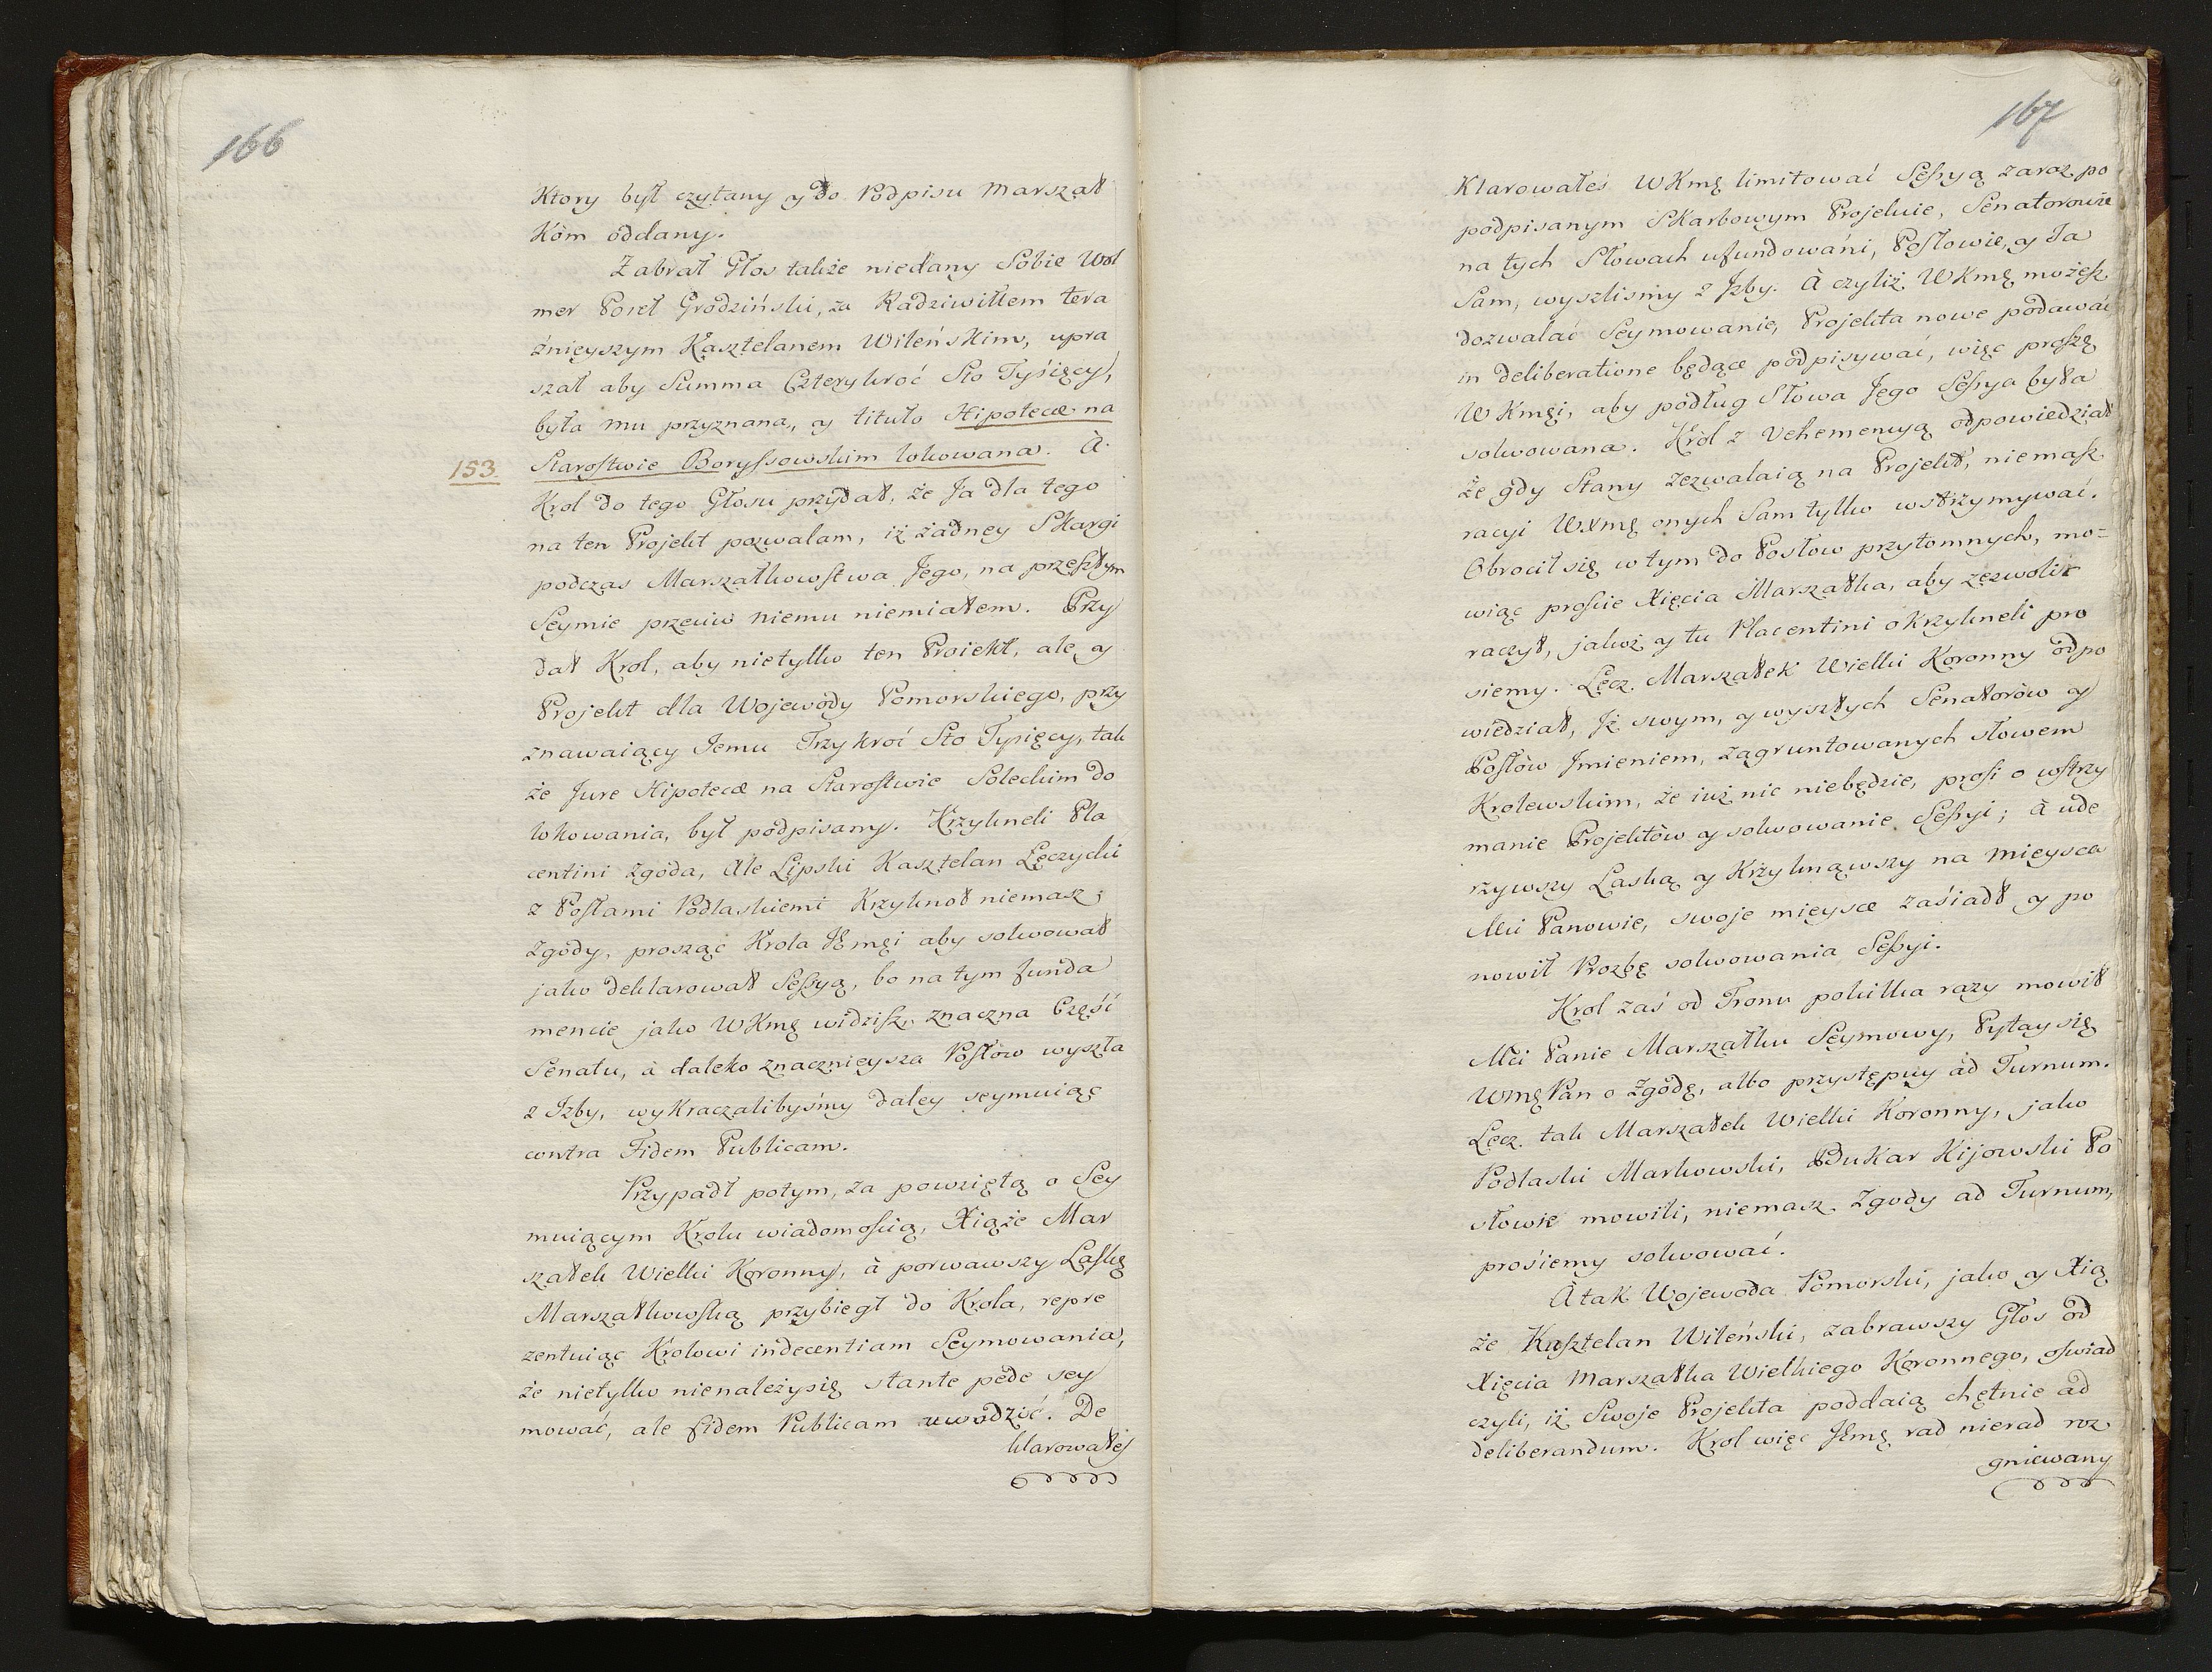 166
Ktory był czytany y do Podpisu Marszał
Kòm oddany.
Zabrał Głos także niedany Sobie Wol
mer Poseł Grodziński, za Radziwiłłem tera
znieyszym Kasztelanem Wileńskim, upra
szał aby Summa Czterykroć Sto Tysięcy,
była mu przyznana, y titulo Hipotecæ na
153 Starostwie Boryssowskim lokowana. À
Krol do tego Głosu przydał, że Ja dla tego
na ten Projekt pozwalam, iż żadney Skargi
podczas Marszałkowstwa Jego, na przeszłym
Seymie przeciw niemu niemiałem. Przy
dał Krol, aby nietylko ten Proiekt, ale y
Projekt dla Wojewody Pomorskiego, przy
znawaiący Jemu Trzykroć Sto Tysięcy, tak
że Jure Hipotecæ na Starostwie Soleckim do
lokowania, był podpisany. Krzykneli Pla
centini Zgoda, Ale Lipski Kasztelan Łęczycki
z Posłami Podlaskiemi Krzyknoł niemasz
Zgody, prosząc Krola JKmći aby solwował
jako deklarował Sessyą, bo na tym funda
mencie jako WKmć widzisz, znaczna Część
Senatu, à daleko znacznieysza Posłow wyszła
z Izby, wykraczalibyśmy daley seymuiąc
contra Fidem Publicam.
Przypadł potym, za powziętą o Sey
muiącym Krolu wiadomością, Xiąże Mar
szałek Wielki Koronny, à porwawszy Laskę
Marszałkowską przybiegł do Krola, repre
zentuiąc Krolowi indecentiam Seymowania,
że nietylko nienależysię stante pede sey
mować, ale fidem Publicam uwodzić. De
klarowałeś
167
Klarowałeś WKmć limitować Sessyą zaraz po
podpisanym Skarbowym Projekcie, Senatorowie
na tych Słowach ufundowani, Posłowie, y Ja
Sam, wyszlismy z Izby. À czyliż WKmć możesz
dozwalać Seymowanie, Projekta nowe podawać
in deliberatione będące podpisywać, więc proszę
WKmći, aby podług Słowa Jego Sessya była
solwowana. Król z Vehemencyą odpowiedział
że gdy Stany zezwalaią na Projekt, niemasz
racyi WXmć onych Sam tylko wstrzymywać.
Obrocił się w tym do Posłow przytomnych, mo=
wiąc proście Xięcia Marszałka, aby zezwolić
raczył, jakoż y tu Placentini okrzykneli pro
siemy. Lecz Marszałek Wielki Koronny odpo
wiedział, Jż swym, y wyszłych Senatorów y
Posłów Jmieniem, zagruntowanych słowem
Krolewskim, że iuż nic niebędzie, prosi o wstrzy
manie Projektòw y solwowanie Sessyi; à ude
rzywszy Laską y Krzyknąwszy na mieysca
Mći Panowie, swoje mieysce zasiadł y po
nowił Prozbę solwowania Sessyi.
Krol zaś od Tronu pokilka razy mowił
Mći Panie Marszałku Seymowy, Pytay się
WmćPan o Zgodę, albo przystępuy ad Turnum.
Lecz tak Marszałek Wielki Koronny, jako
Podlaski Markowski, Bdukar Kijowski Po
słowie mowili, niemasz Zgody ad Turnum,
prosiemy solwować.
À tak Wojewoda Pomorski, jako y Xią
że Kasztelan Wileński, zabrawszy Głos od
Xięcia Marszałka Wielkiego Koronnego, oswiad
czyli, iż Swoje Projekta poddaią chętnie ad
deliberandum. Krol więc JKmć rad nierad roz
gniewany